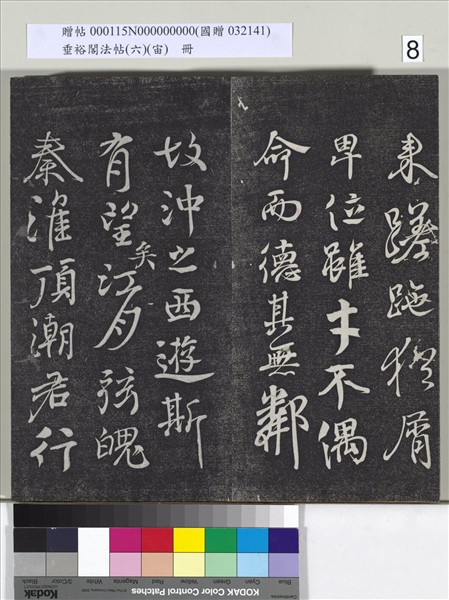 贈帖 000115N000000000(國贈 032141)
垂裕閣法帖(六)(宙) 冊
8
來蹉跎猥屑
卑位雖才不偶
命而德其無鄰
故沖之西遊斯
有望矣江月弦魄
秦淮頂潮君行
Blue
Cyan
Green
Yellow
Red
Magenta
White
3/Color
Black
Kodak Color Control Patches
Kodak